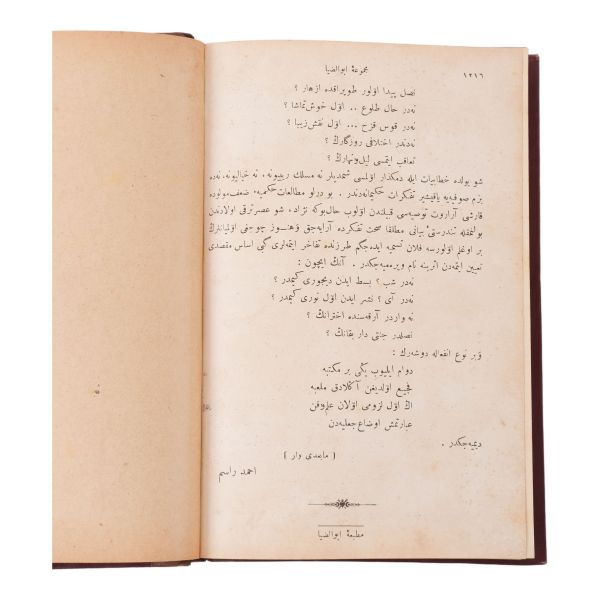 ١٢١٦
مجموعهٔ ابوالضيا
نصل پيدا اولور طوپراقده ازهار ؟
نه‌در حال طلوع .. اول خوش تماشا ؟
نه‌در قوس قزح ... اول نقش زيبا ؟
نه‌دندر اختلافى روزگارك ؟
تعاقب ايتمسى ليل ونهارك ؟
شو يولده خطابيات ايله دمكذار اولمسى شمديلر نه مسلك ربيديونه، نه خياليونه، نه‌ده
بزم صوفيه‌يه ياقيشير تفكرات حكيمانه‌دندر . بو درلو مطالعات حكميه، ضعف مولوده
قارشى آراروت توصيه‌سى قبيلندن اولوب حال بوكه نژاد، شو عصر ترقى اولادندن
بولنمغله تندرستئ بيانى مطلقا صحت تفكرده آرايه‌جق و هنوز چوجنى اوليانلرك
بر اوغلم اولورسه فلان تسميه ايده‌جكم طرزنده تفاخر ايتمه‌لرى كبى اساس مقصدى
تعيين ايتمه‌دن اثرينه نام ويره‌ميه‌جكدر . آنك ايچون :
نه‌در شب ؟ بسط ايدن ديجورى كيمدر ؟
نه‌در آى ؟ نشر ايدن اول نورى كيمدر ؟
نه واردر آرقه‌سنده اخترانك ؟
نصلدر جنتى دار بقانك ؟
و بر نوع انفعاله دوشه‌رك :
دوام ايليوب يكى بر مكتبه
فجيع اولديغن آكلادق ملعبه
اك اول لزومى اولان علم وفن
عبارتمش اوضاع جعليه‌دن
ديميه‌جكدر .
( مابعدى وار )
احمد راسم
مطبعهٔ ابوالضيا